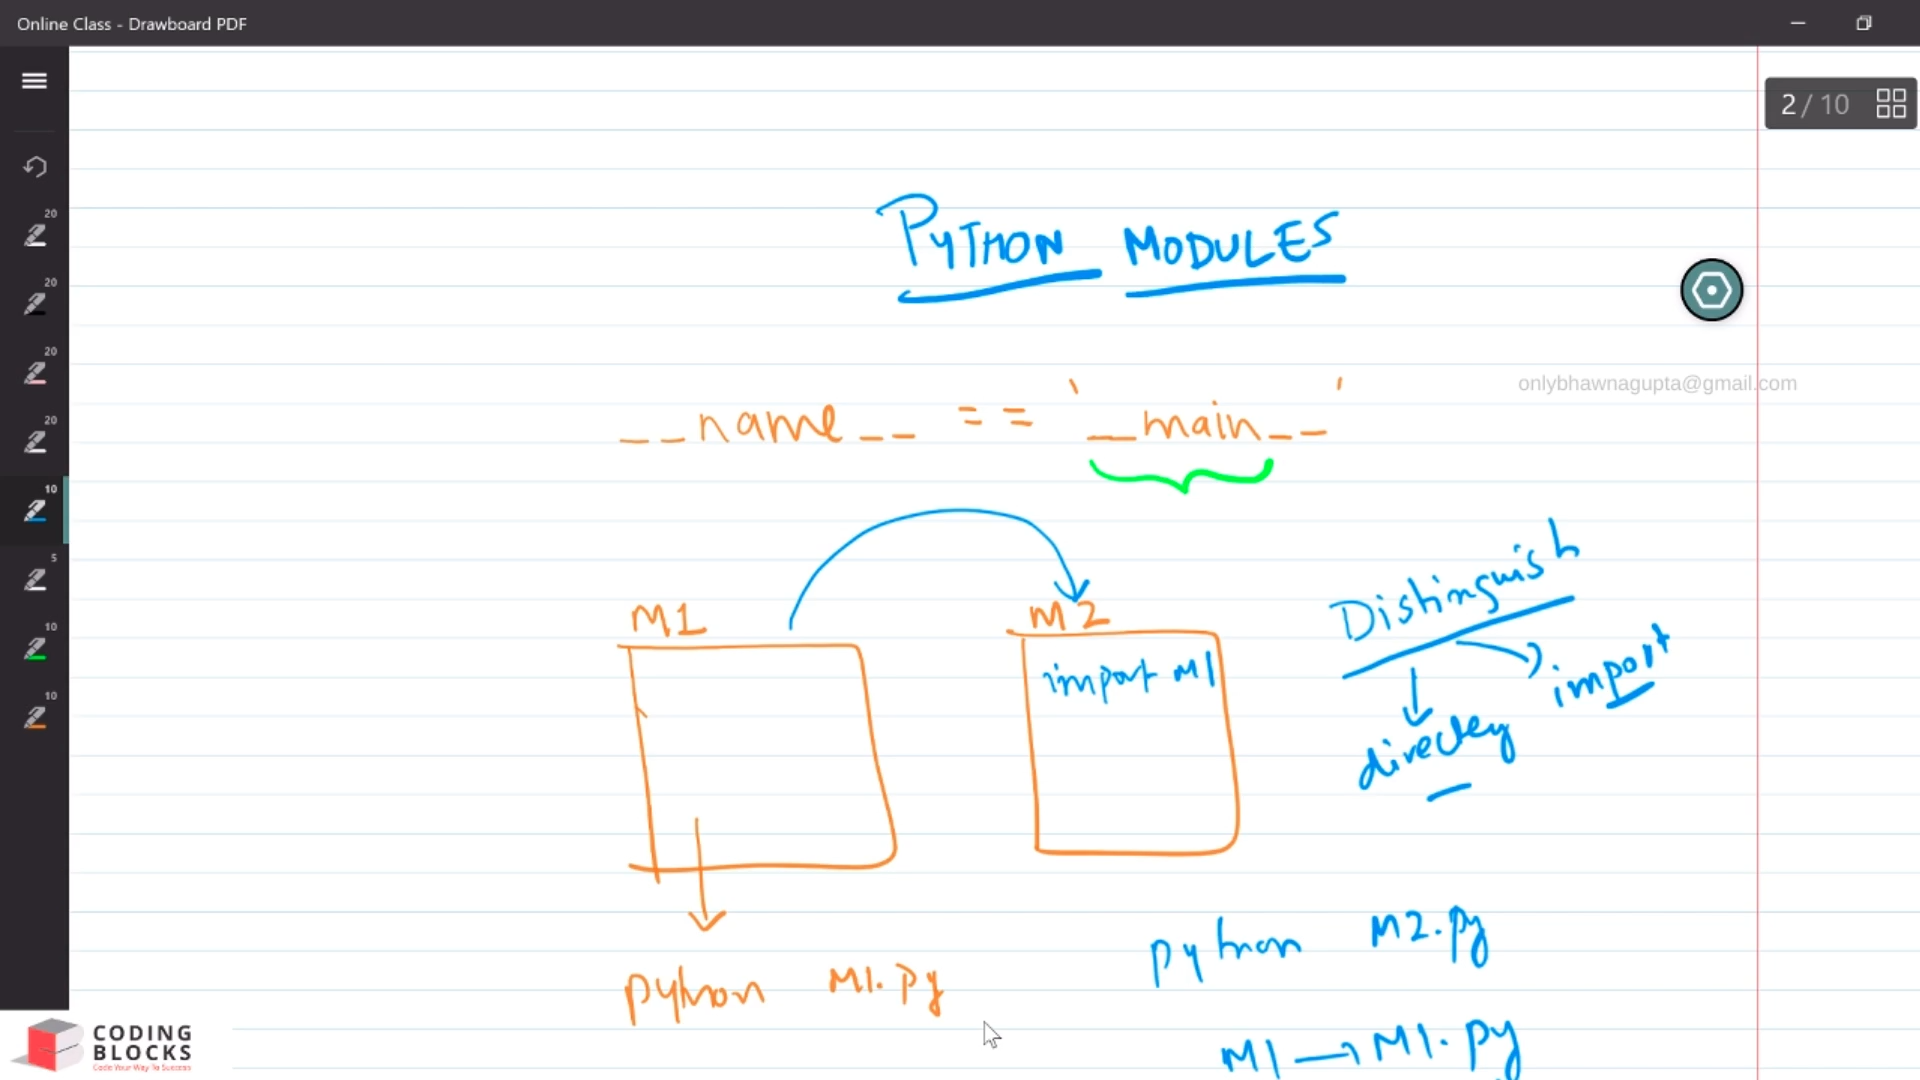 Online Class - Drawboard PDF
2 / 10
20
20
20
20
10
5
10
10
PYTHON MODULES
onlybhawnagupta@gmail.com
__name__ == '__main__'
M1
M2
import M1
Distinguish
directly
import
python M1.py
python M2.py
M1 → M1.py
CODING
BLOCKS
Code Your Way To Success